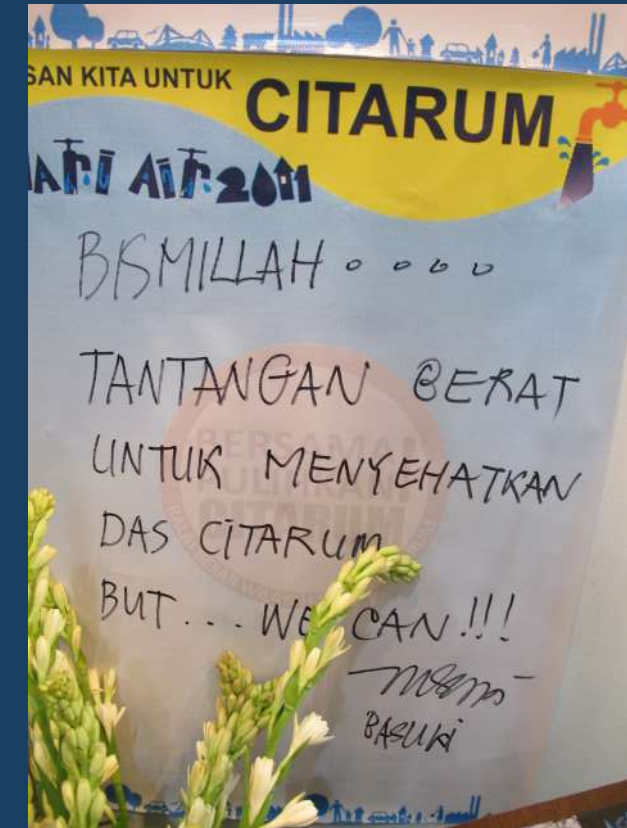 SAN KITA UNTUK CITARUM
HARI AIR 2011
BISMILLAH ....
TANTANGAN BERAT
UNTUK MENYEHATKAN
DAS CITARUM
BUT... WE CAN!!!
BASUKI
BERSAMA
PULIHKAN
CITARUM